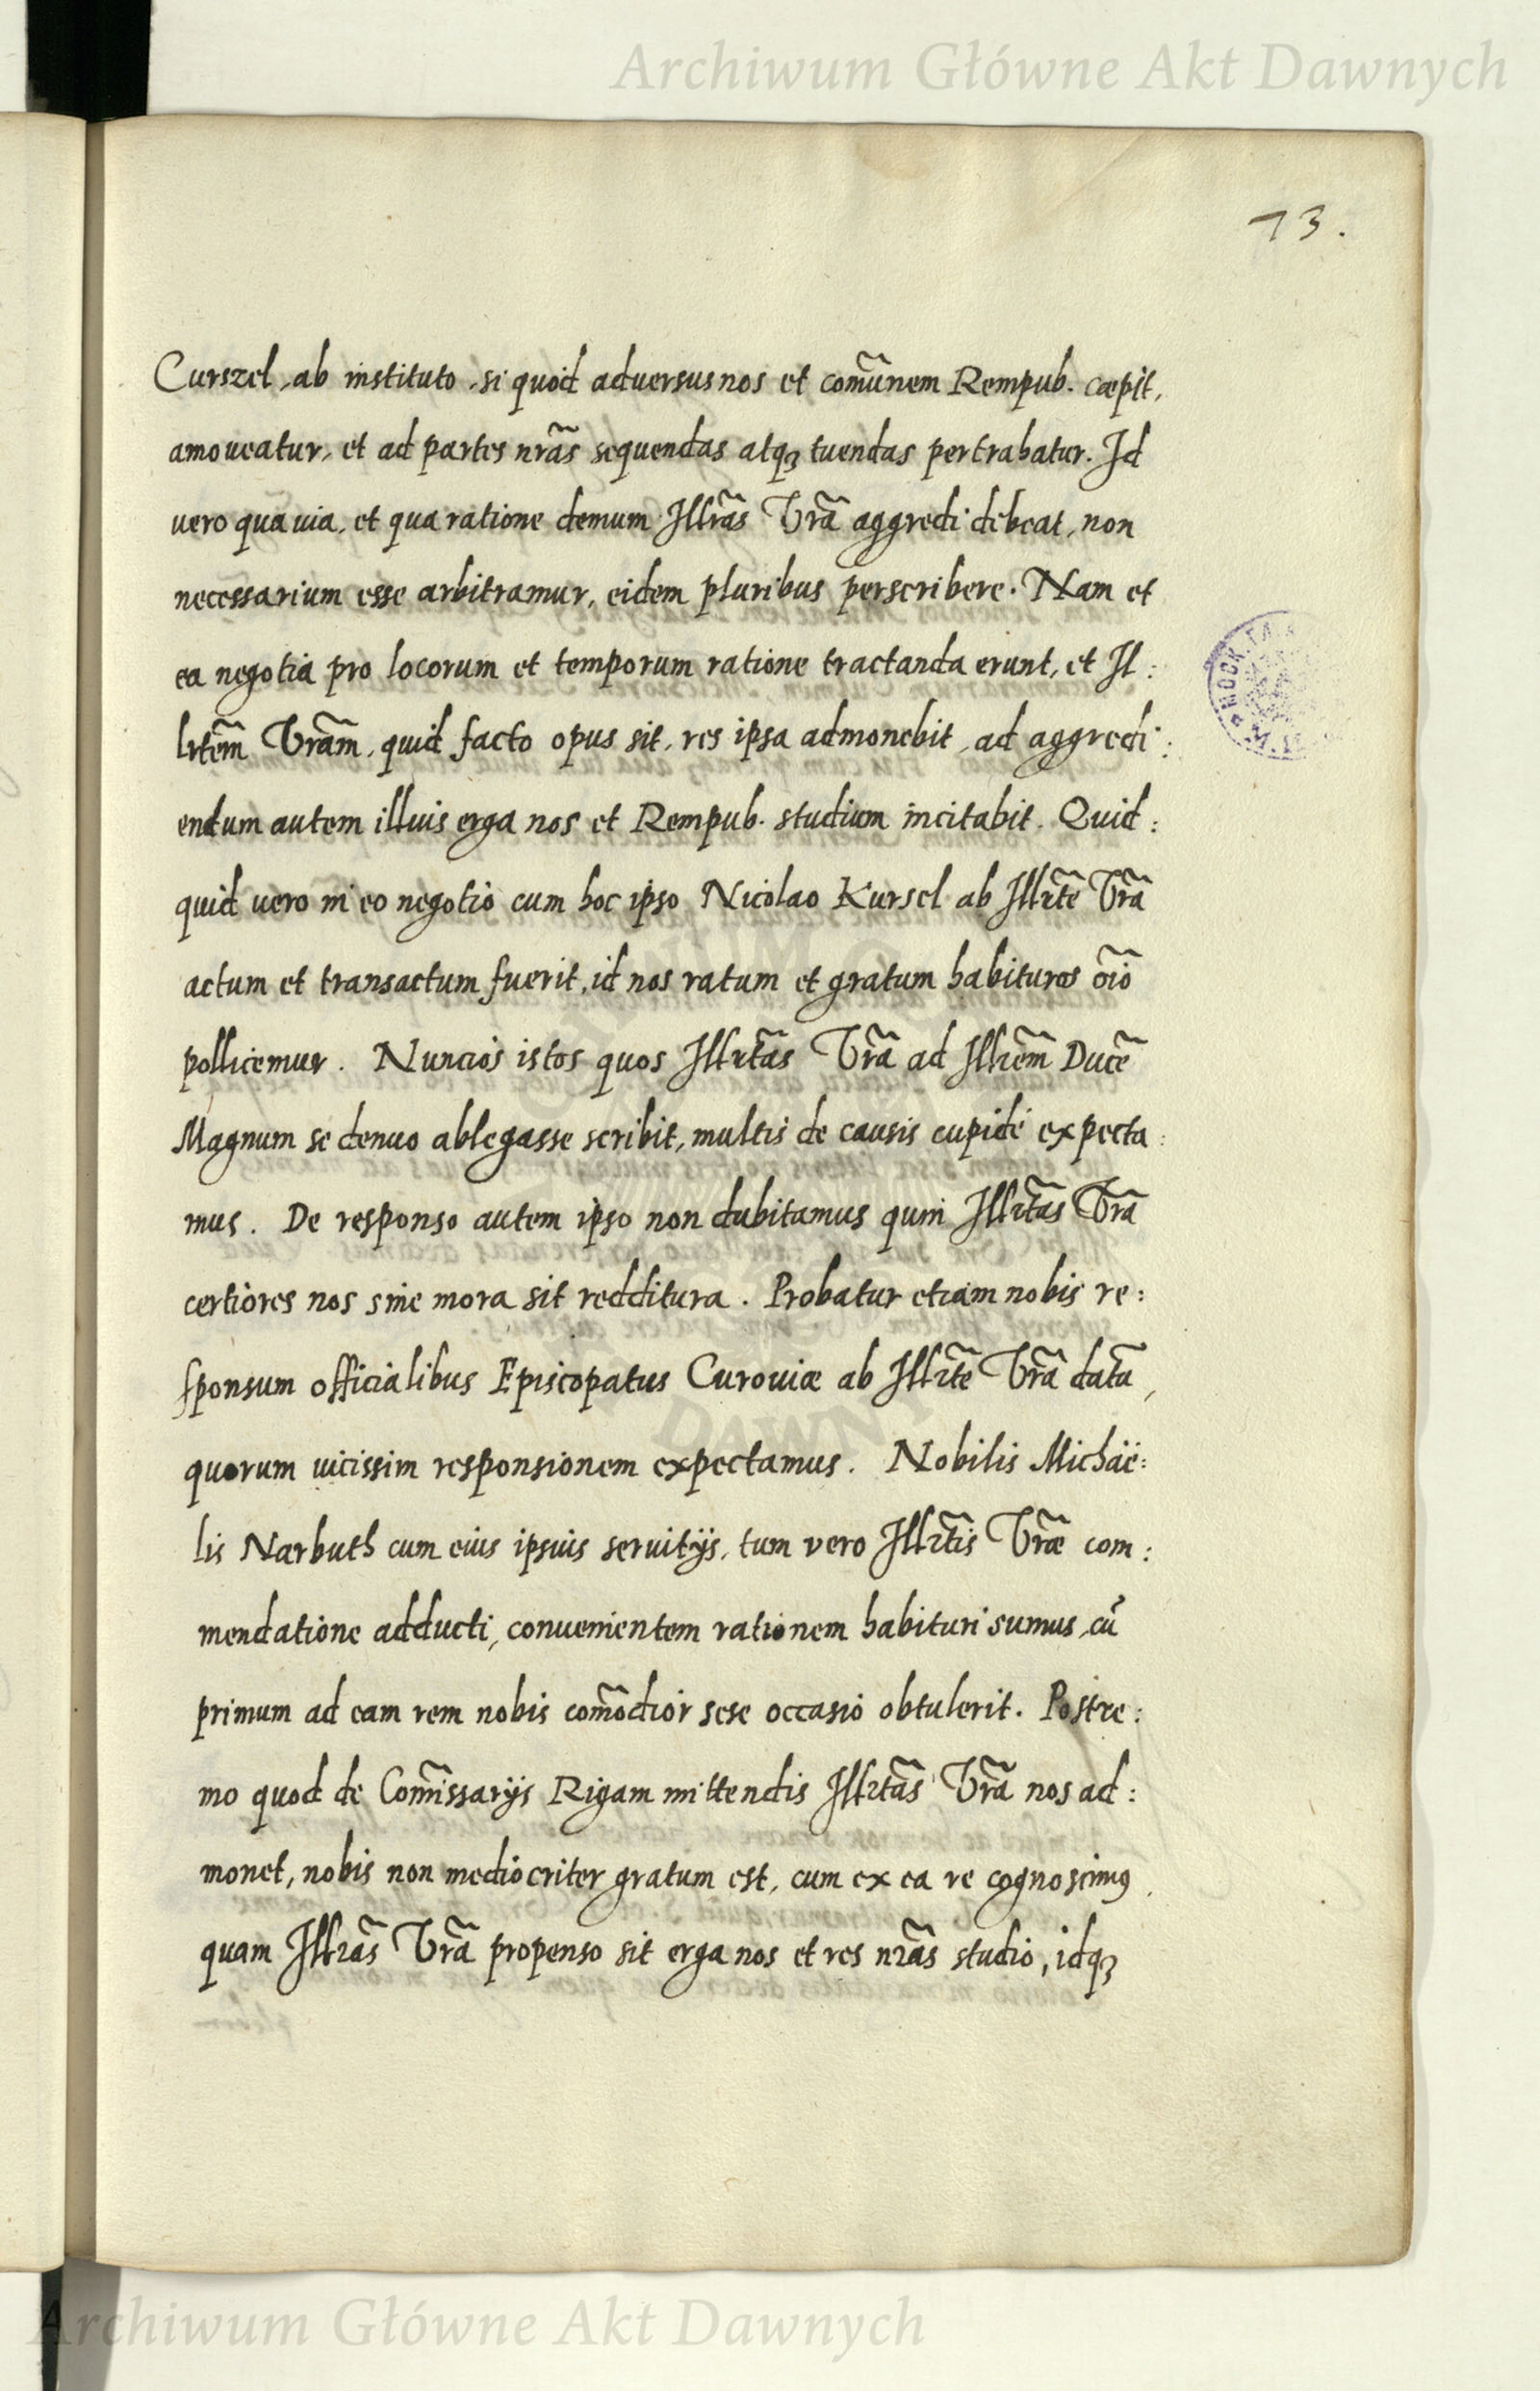 Archiwum Główne Akt Dawnych
73.
Curszel, ab instituto, si quod adversus nos et com̃unem Rempub. cæpit,
amoveatur, et ad partes nrãs sequendas atqꝫ tuendas pertrahatur. Id
vero qua via, et qua ratione demum Illrãs Vrã aggredi debeat, non
necessarium esse arbitramur, eidem pluribus perscribere. Nam et
ea negotia pro locorum et temporum ratione tractanda erunt, et Il:
lrtẽm Vrãm, quid facto opus sit, res ipsa admonebit, ad aggredi:
endum autem illius erga nos et Rempub. studium incitabit. Quid:
quid vero in eo negotio cum hoc ipso Nicolao Kursel ab Illrtẽ Vrã
actum et transactum fuerit, id nos ratum et gratum habituros oĩo
pollicemur. Nuncios istos quos Illrtãs Vrã ad Illrẽm Ducẽ
Magnum se denuo ablegasse scribit, multis de causis cupidé expecta:
mus. De responso autem ipso non dubitamus quin Illrtãs Vrã
certiores nos sine mora sit redditura. Probatur etiam nobis re:
sponsum officialibus Episcopatus Curoviæ ab Illrtẽ Vrã datũ,
quorum vicissim responsionem expectamus. Nobilis Michäe:
lis Narbuth cum eius ipsius servitijs, tum vero Illrtĩs Vræ̃ com:
mendatione adducti, convenientem rationem habituri sumus, cũ
primum ad eam rem nobis com̃odior sese occasio obtulerit. Postre:
mo quod de Com̃issarijs Rigam mittendis Illrtãs Vrã nos ad:
monet, nobis non mediocriter gratum est, cum ex ea re cognoscimꝰ
quam Illrãs Vrã propenso sit erga nos et res nrãs studio, idqꝫ
Archiwum Główne Akt Dawnych